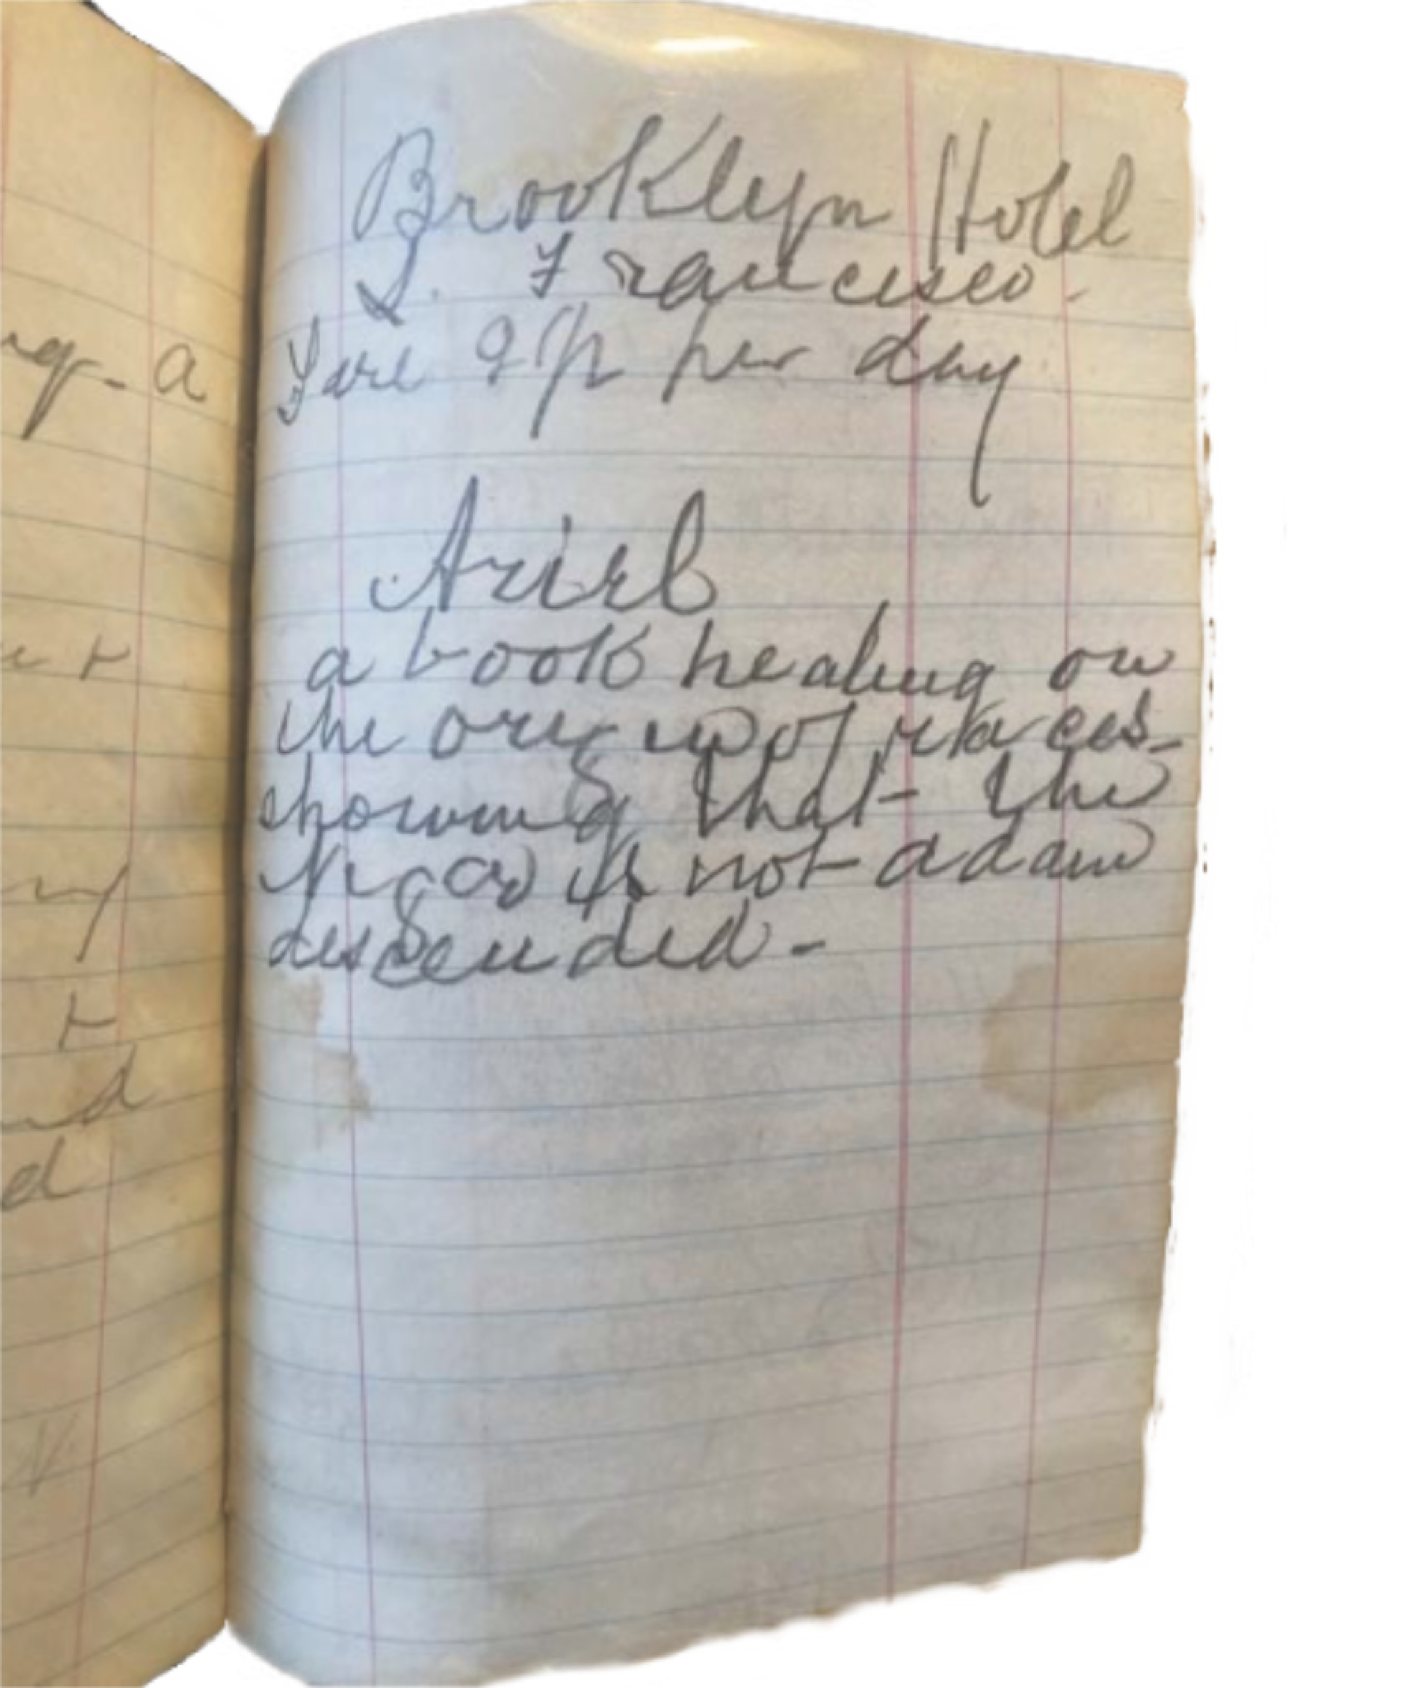 Brooklyn Hotel
S. Francisco.
Fare 2 per day
Ariel
a book healing on
the origin of races -
showing that the
is not adam
descended -
a
d